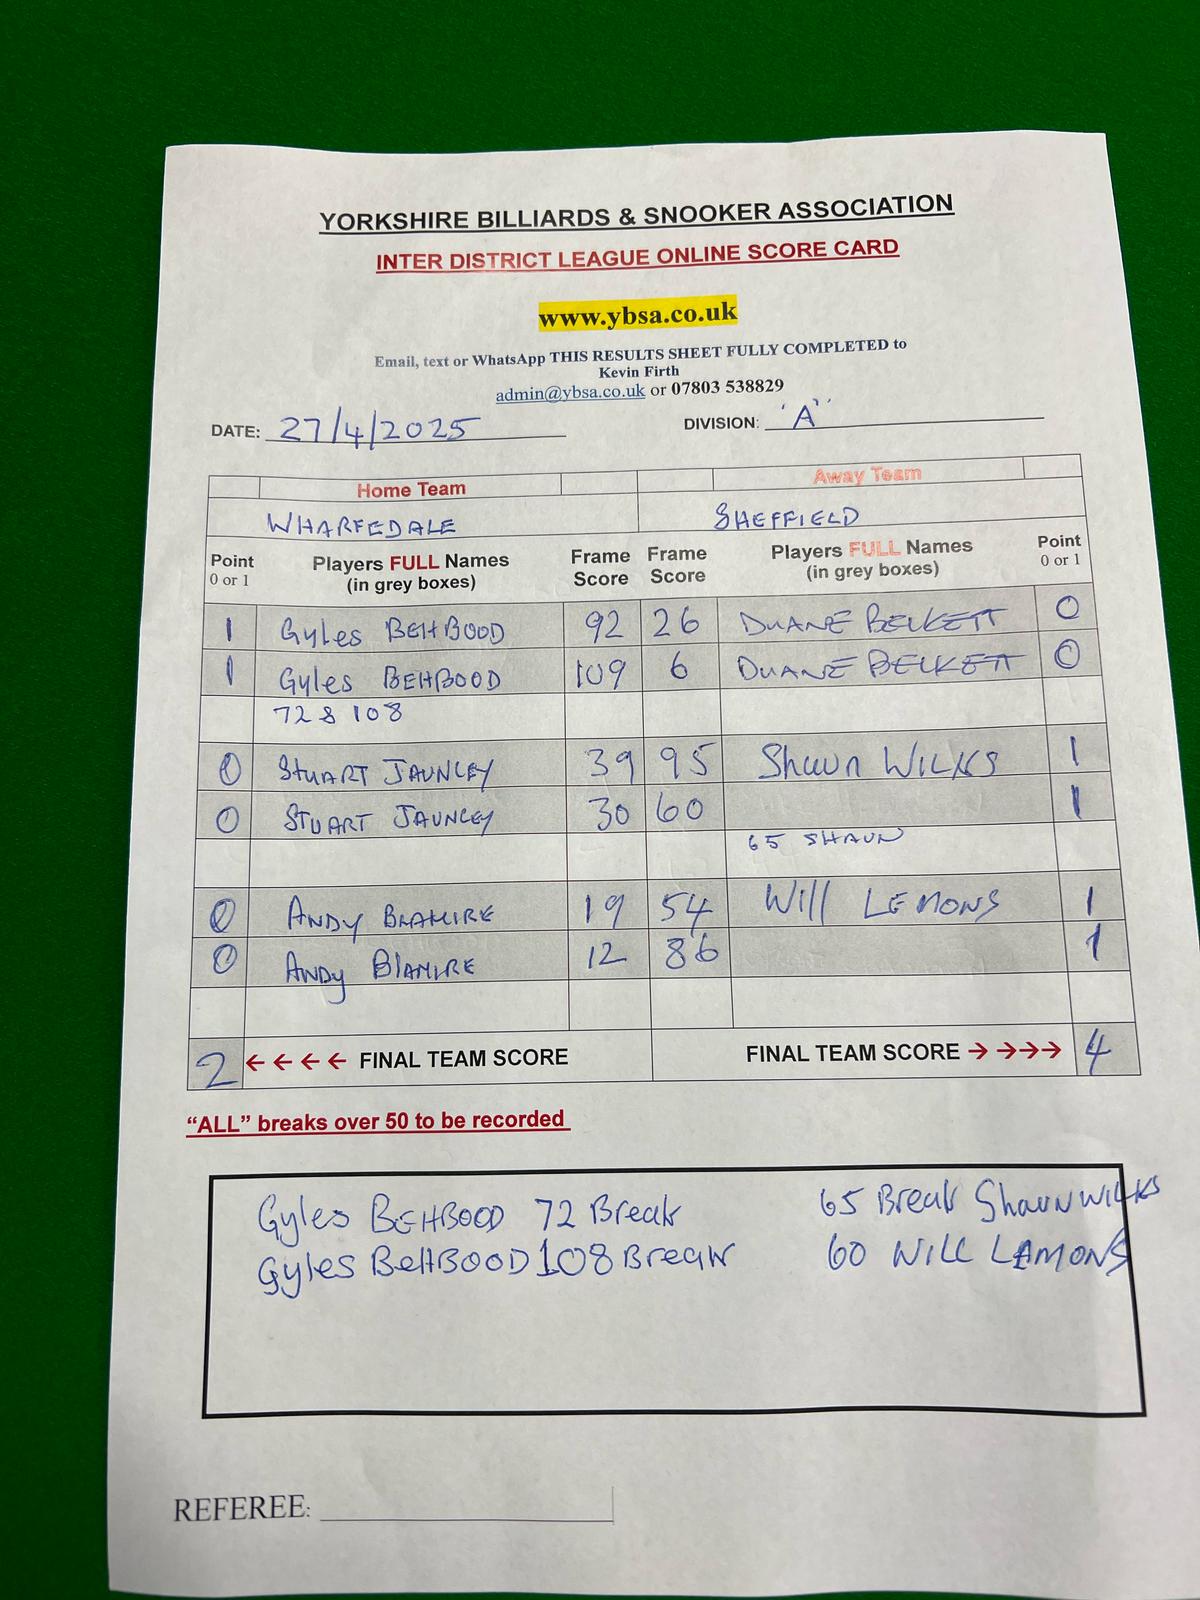 YORKSHIRE BILLIARDS & SNOOKER ASSOCIATION
INTER DISTRICT LEAGUE ONLINE SCORE CARD
www.ybsa.co.uk
Email, text or WhatsApp THIS RESULTS SHEET FULLY COMPLETED to
Kevin Firth
admin@ybsa.co.uk or 07803 538829
DATE: 27/4/2025 DIVISION: "A"
Home Team Away Team
WHARFEDALE SHEFFIELD
Point 0 or 1 Players FULL Names (in grey boxes) Frame Score Frame Score Players FULL Names (in grey boxes) Point 0 or 1
1 Gyles BEHBOOD 92 26 DUANE BECKETT 0
1 Gyles BEHBOOD 109 6 DUANE BECKETT 0
72 & 108
0 STUART JAUNCEY 39 95 Shaun WILKS 1
0 STUART JAUNCEY 30 60 1
65 SHAUN
0 ANDY BLAMIRE 19 54 Will LEMONS 1
0 ANDY BlAMIRE 12 86 1
2 ← ← ← ← FINAL TEAM SCORE FINAL TEAM SCORE → → → → 4
“ALL” breaks over 50 to be recorded
Gyles BEHBOOD 72 Break 65 Break Shaun WILKS
Gyles BeHBOOD 108 Break 60 WILL LAMONS
REFEREE: